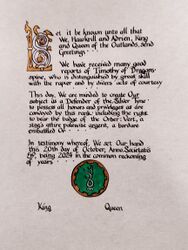 Be it be known unto all that
We, Hawkrill and Adrien, King
and Queen of the Outlands, send
Greetings
We have received many good
reports of Timothy of Dragons-
spine, who is distinguished by great skill
with the rapier and by divers acts of courtesy
This day, We are minded to Create our
subject as a Defender of the Silver Tyne
to possess all honors and privileges as are
conveyed by this rank including the right
to bear the badge of the Order: Vert, a
stag's attire palewise argent, a bordure
embattled Or
In testimony whereof, We set Our hand
this 26th day of October, Anno Societatis
being 2024 in the common reckoning
of years
King
Queen